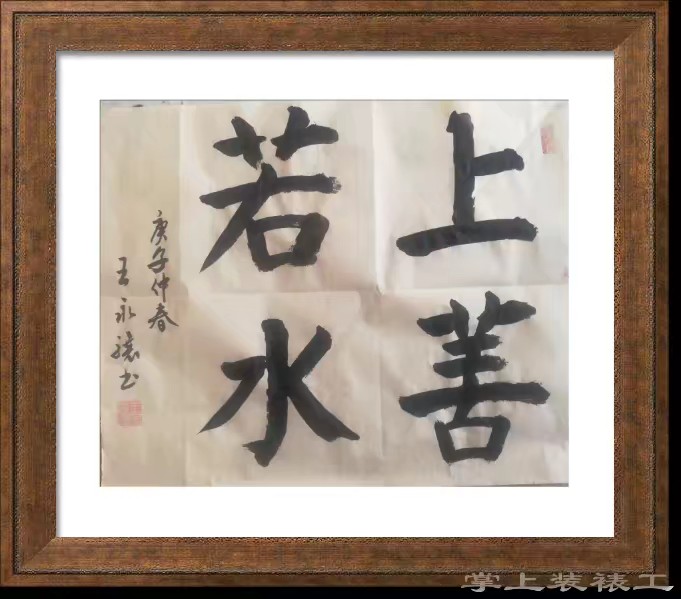 上善
若水
庚子仲春
王永骧书
掌上装裱工